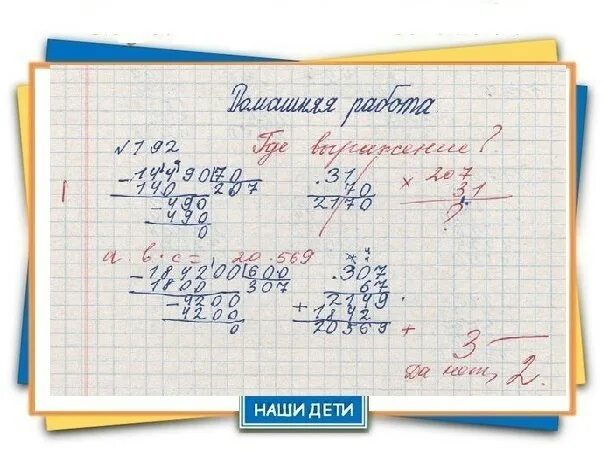 Домашняя работа
№792 Где выражение?
14490 70
140 207
490
490
0
.31
70
2170
× 207
31
?
а:в·с= 20.569
184200 600
1800 307
4200
4200
0
.307
67
2149
+ 1842
20569 +
3 —
Да нет, 2.
НАШИ ДЕТИ